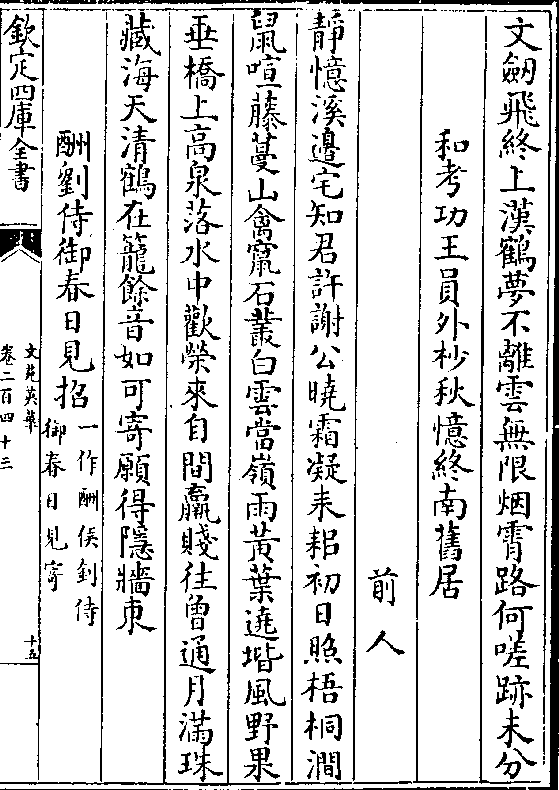 文劒飛終上漢鶴夢不離雲無限烟霄路何嗟跡未分
和考功王員外杪秋憶終南舊居
前人
靜憶溪邉宅知君許謝公曉霜凝耒耜初日照梧桐澗
鼠喧藤蔓山禽竄石叢白雲當嶺雨黃葉遶堦風野果
垂橋上髙泉落水中歡榮來自間羸賤往曾通月滿珠
藏海天清鶴在籠餘音如可寄願得隱牆東
酬劉侍御春日見招一作酬侯釗侍御春日見寄
欽定四庫全書
文苑英華
卷二百四十三
十五